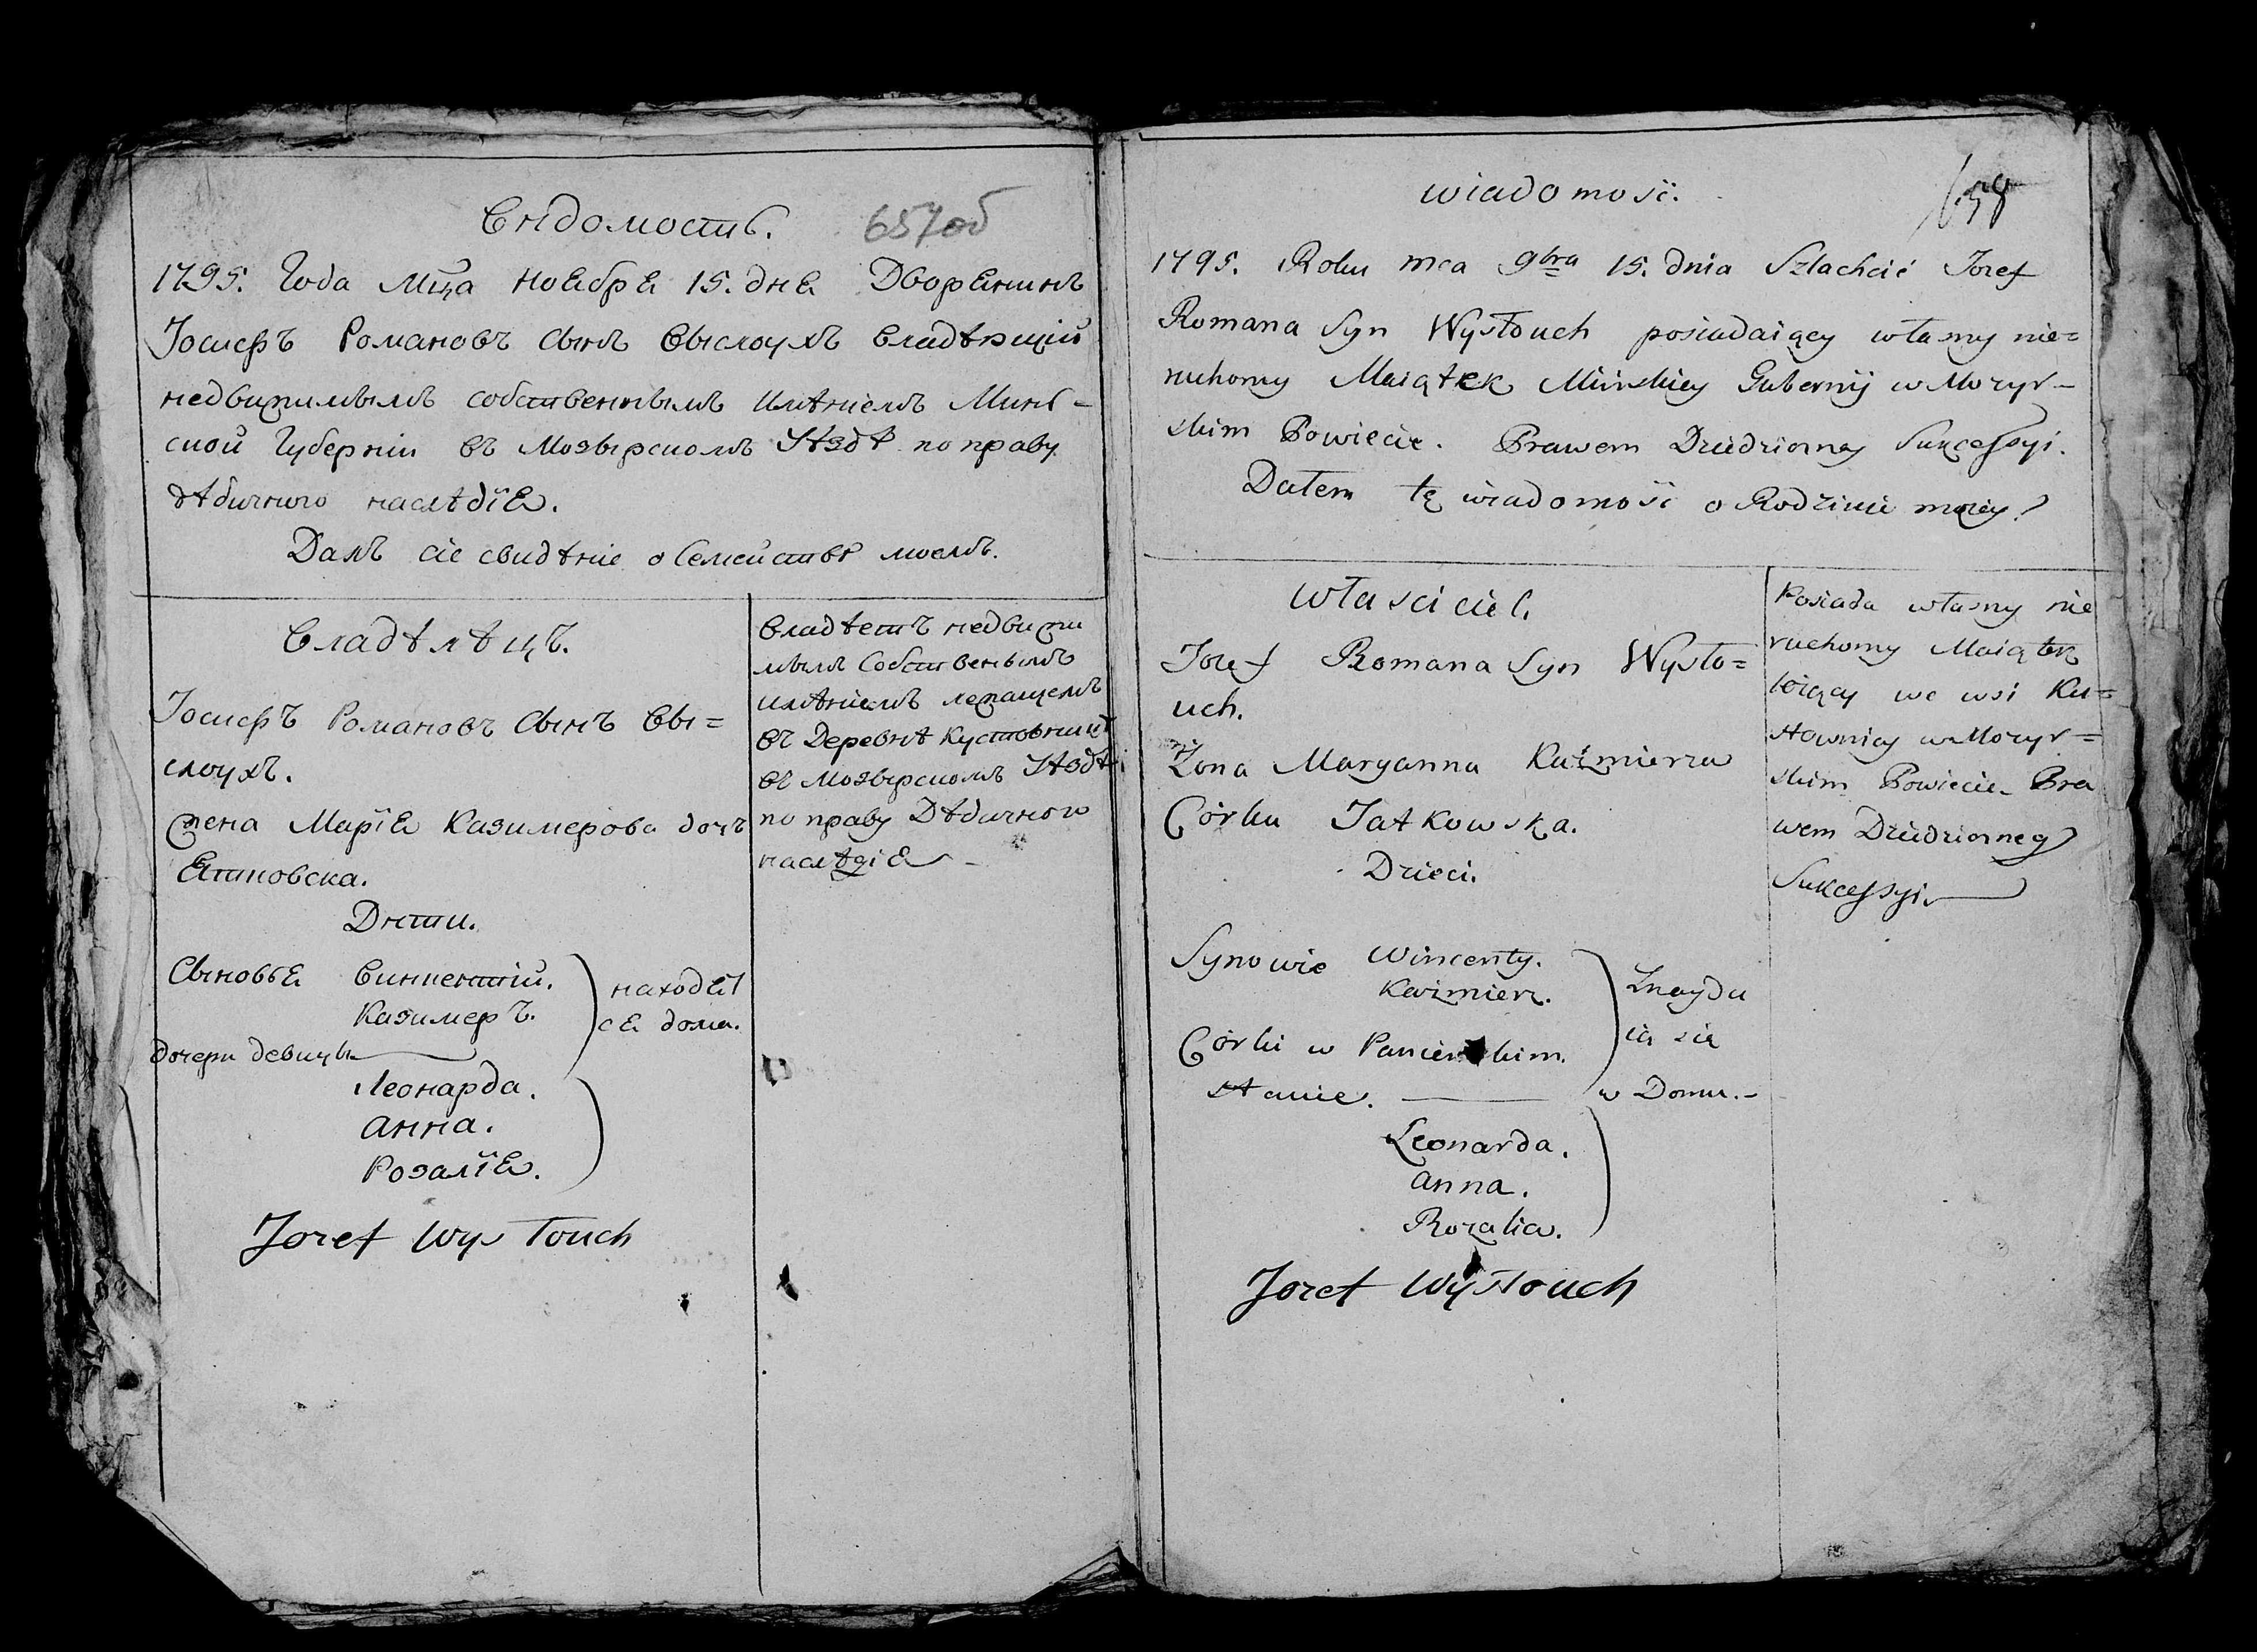 Вѣдомость. 657об
1795. Года Мца Ноября 15. дня Дворянинъ
Іосифъ Романовъ Сынъ Выслоухъ Владѣющій
недвижимымъ собственнымъ имѣніемъ Минъ-
ской Губерніи въ Мозырскомъ Уѣздѣ по праву
дѣдичного наслѣдїя.
Далъ сіе свидѣніе о Семействѣ моемъ.
Владѣлѣцъ.
Іосифъ Романовъ Сынъ Вы=
слоухъ.
жена Марїя Казимерова дочъ
Ятковска.
Дѣти.
Сыновья Винцентій.
Казимеръ.
находят
ся дома.
дочери девицы
Леонарда.
Анна.
Розалїя.
Jozef Wysłouch
Владѣетъ недвижи
мымъ Собственымъ
имѣніемъ лежащемъ
въ Деревнѣ Кустовницѣ
въ Мозырскомъ Уѣздѣ
по праву Дѣдичного
наслѣдія
wiadomość.
658
1795. Roku mca 9bra 15. dnia Szlachcić Jozef
Romana Syn Wysłouch posiadaiący własny nie=
ruchomy Maiątek Minskiey Gubernij w Mozyr-
skim Powiecie. Prawem Dziedziczney Sukcessyi.
Dałem tę wiadomość o Rodzinie moiey.
właściciel.
Jozef Romana Syn Wysło=
uch.
Żona Maryanna Kaźmierza
Córka Jatkowska.
Dzieci.
Synowie Wincenty.
Kaźmierz.
Córki w Panienskim.
stanie.
Znaydu
ią się
w Domu.-
Leonarda.
Anna.
Rozalia.
Jozef Wysłouch
Posiada własny nie
ruchomy Maiątek
leżący we wsi Ku=
stownicy w Mozyr=
skim Powiecie Pra
wem Dziedziczney
Sukcessyi.